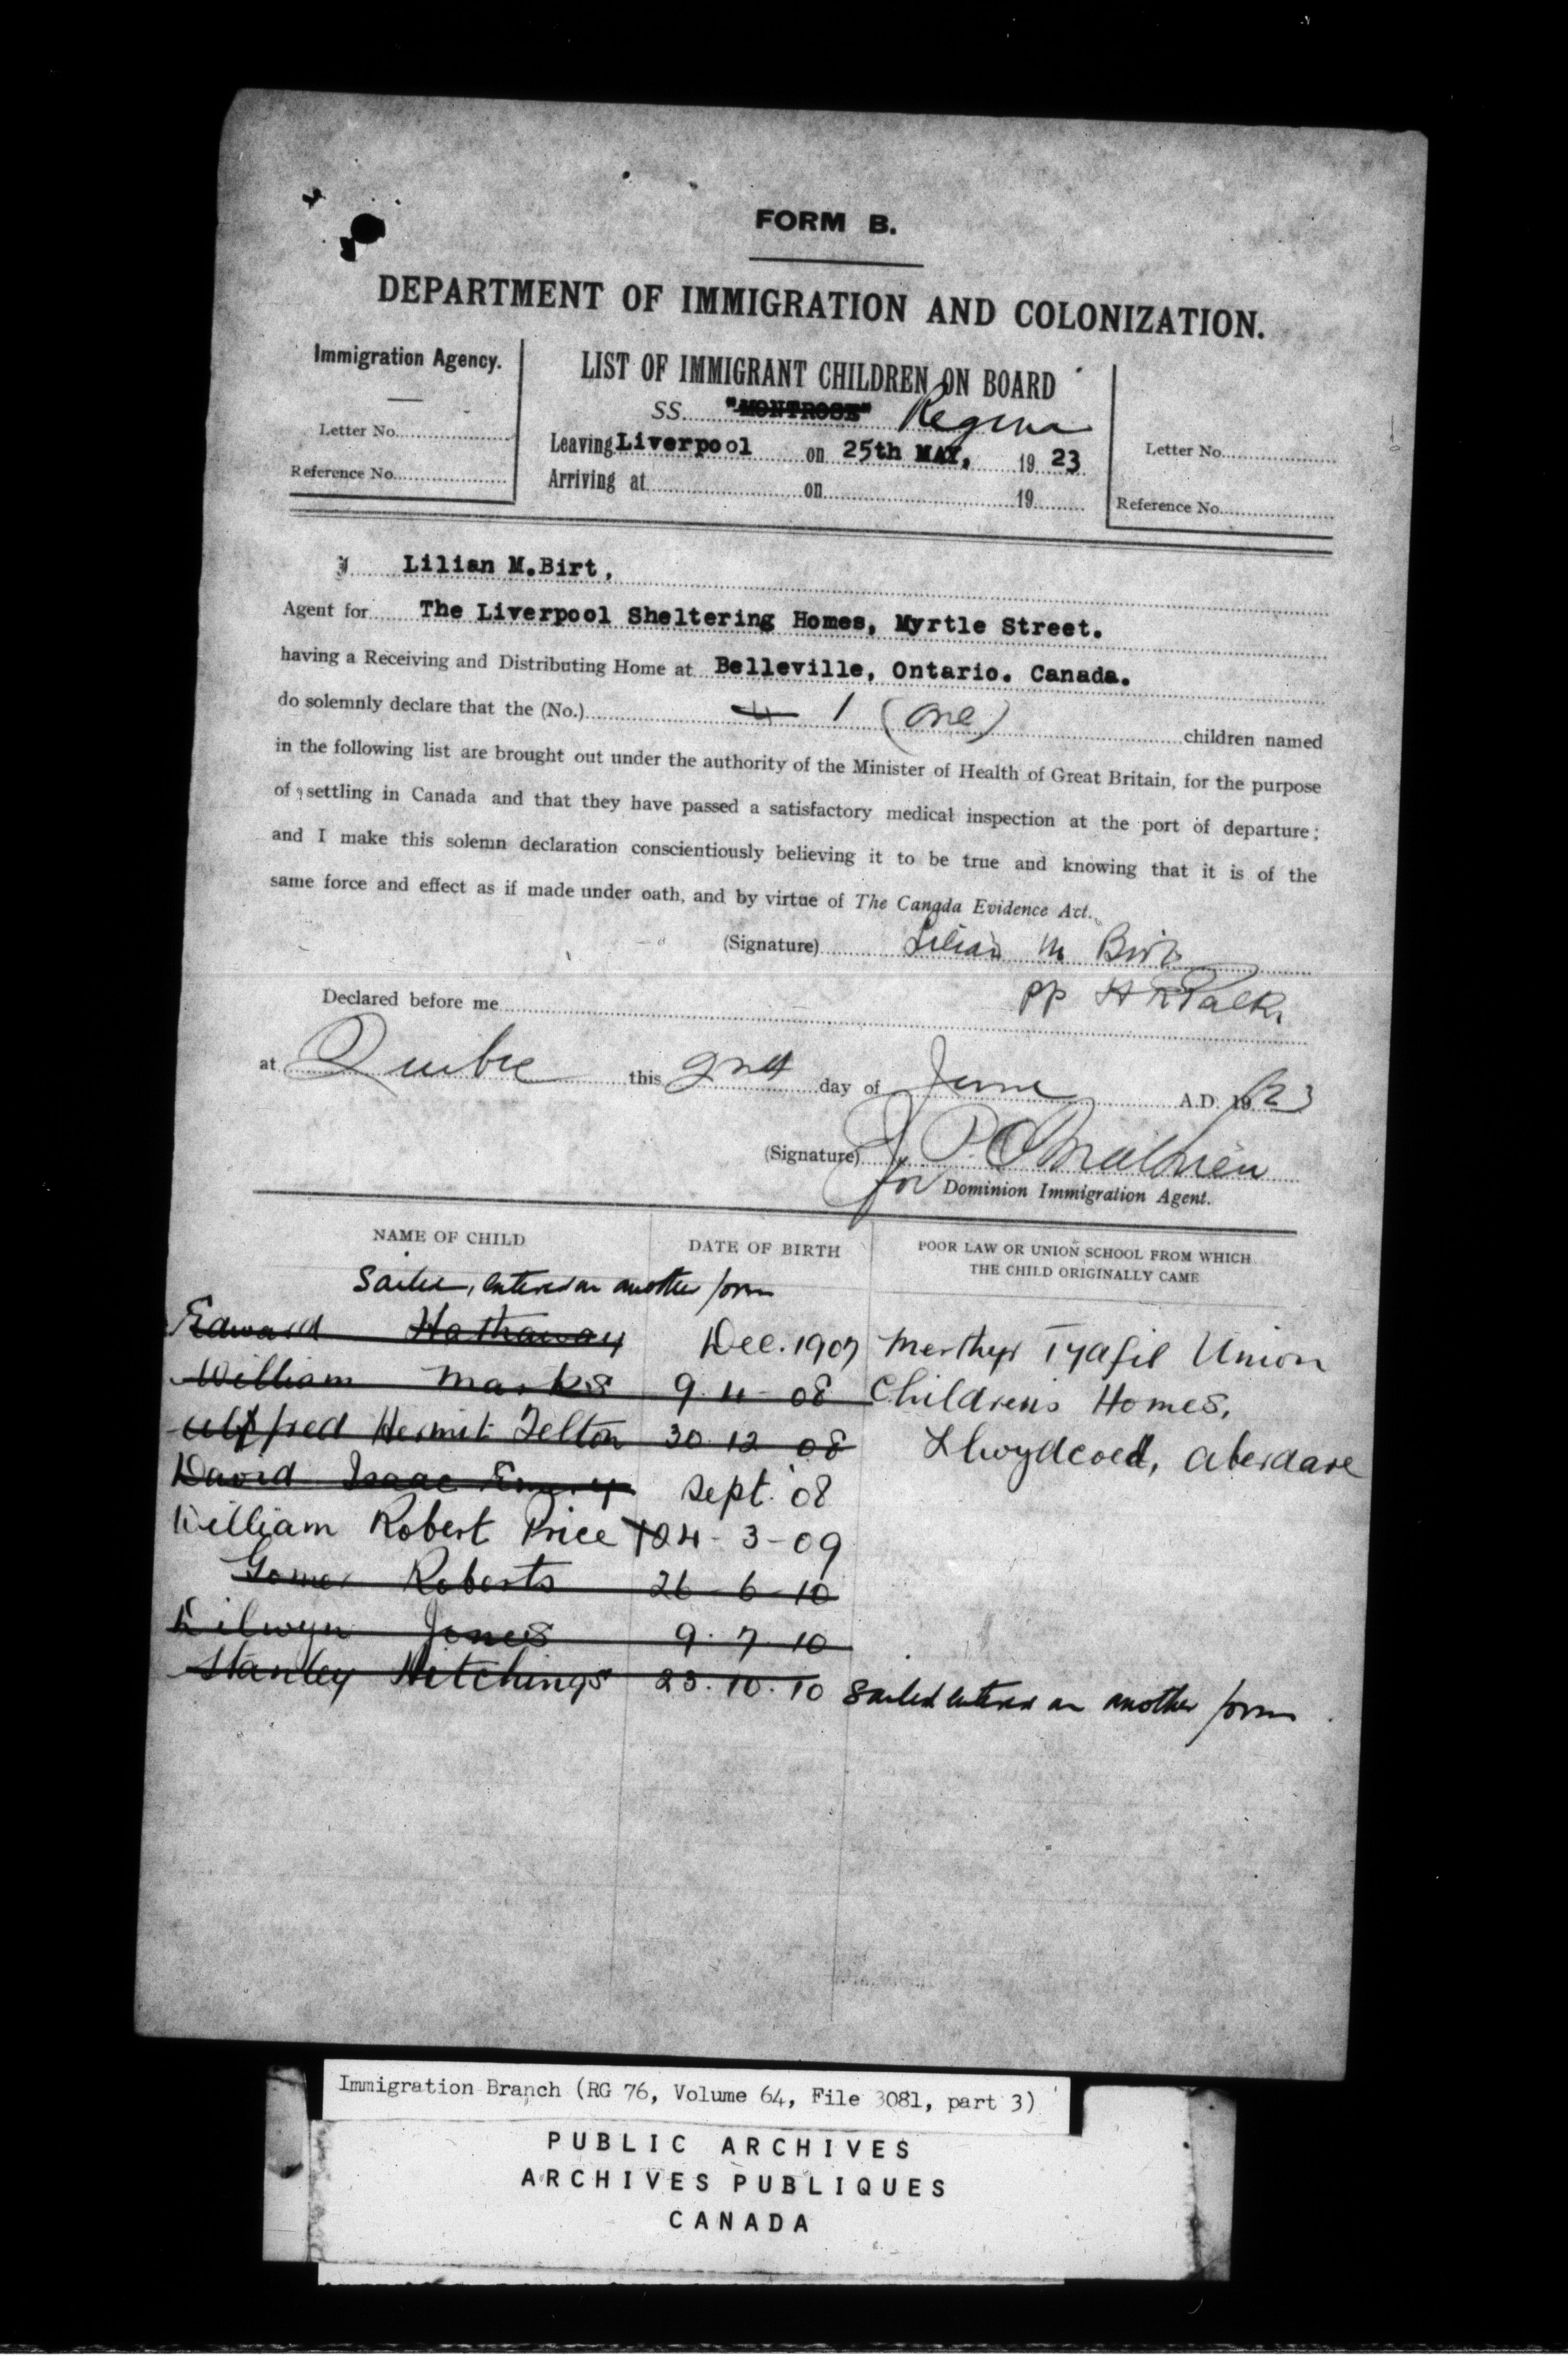 FORM B.
DEPARTMENT OF IMMIGRATION AND COLONIZATION.
Immigration Agency.
Letter No.
Reference No.
LIST OF IMMIGRANT CHILDREN ON BOARD
SS. "MONTROSE" Regina
Leaving Liverpool on 25th MAY, 1923
Arriving at on 19
Letter No.
Reference No.
I Lilian M.Birt,
Agent for The Liverpool Sheltering Homes, Myrtle Street.
having a Receiving and Distributing Home at Belleville, Ontario. Canada.
do solemnly declare that the (No.) 4 1 (one) children named
in the following list are brought out under the authority of the Minister of Health of Great Britain, for the purpose
of settling in Canada and that they have passed a satisfactory medical inspection at the port of departure;
and I make this solemn declaration conscientiously believing it to be true and knowing that it is of the
same force and effect as if made under oath, and by virtue of The Canada Evidence Act.
(Signature) Lilian M Birt
pp
Declared before me
at Quebec this 2nd day of June A.D. 1923
(Signature)
for Dominion Immigration Agent.
NAME OF CHILD DATE OF BIRTH POOR LAW OR UNION SCHOOL FROM WHICH
THE CHILD ORIGINALLY CAME
Sailed, entered on another form
Edward Hathaway Dec. 1907 Merthyr Tydfil Union
William Marks 9-11-08 Childrens Homes,
Alfred Hermit Felton 30 12 08 Llwydcoed, Aberdare
David Isaac Emery Sept. '08
William Robert Price 24-3-09
Gomer Roberts 26-6-10
Dilwyn Jones 9.7.10
Stanley Hitchings 23.10.10 Sailed entered on another form
Immigration Branch (RG 76, Volume 64, File 3081, part 3)
PUBLIC ARCHIVES
ARCHIVES PUBLIQUES
CANADA